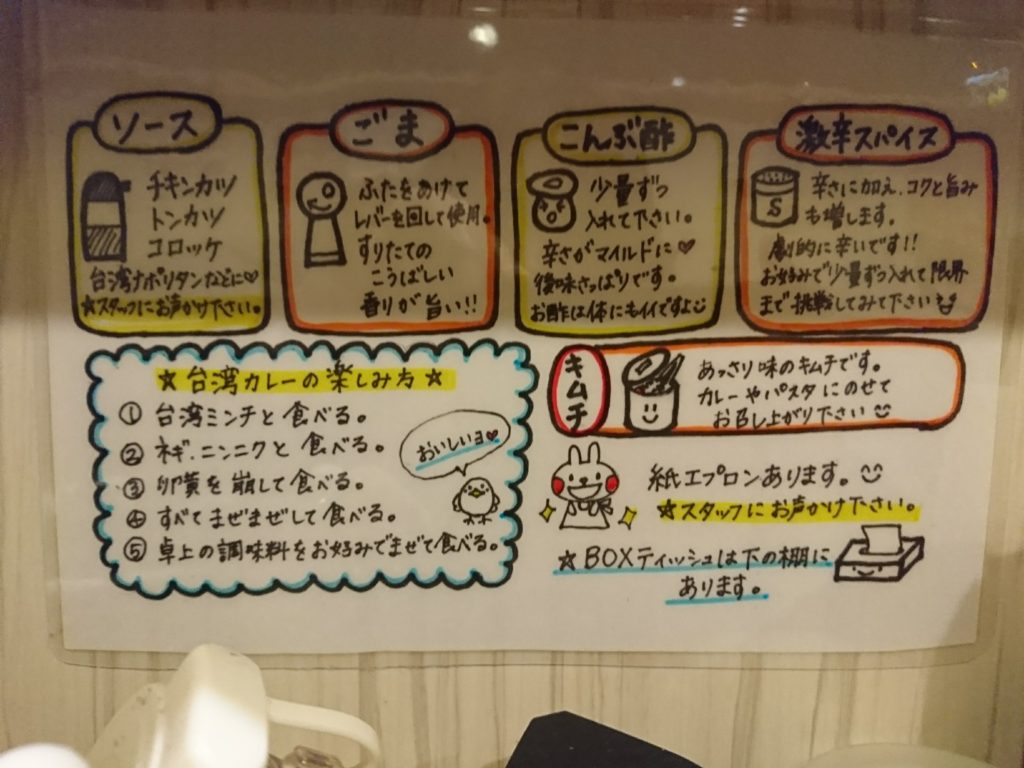 ソース
チキンカツ
トンカツ
コロッケ
台湾ナポリタンなどに♡
☆スタッフにお声かけ下さい。
ごま
ふたをあけて
レバーを回して使用。
すりたての
こうばしい
香りが旨い!!
こんぶ酢
少量ずつ
入れて下さい。
辛さがマイルドに♥
後味さっぱりです。
お酢は体にもイイですよ☺
激辛スパイス
S
辛さに加え、コクと旨み
も増します。
劇的に辛いです!!
お好みで少量ずつ入れて限界
まで挑戦してみて下さい
☆台湾カレーの楽しみ方☆
① 台湾ミンチと食べる。
② ネギ、ニンニクと食べる。
③ 卵黄を崩して食べる。
④ すべてまぜまぜして食べる。
⑤ 卓上の調味料をお好みでまぜて食べる。
おいしいヨ♥
キムチ
あっさり味のキムチです。
カレーやパスタにのせて
お召し上がり下さい☺
紙エプロンあります。☺
☆スタッフにお声かけ下さい。
☆BOXティッシュは下の棚に
あります。